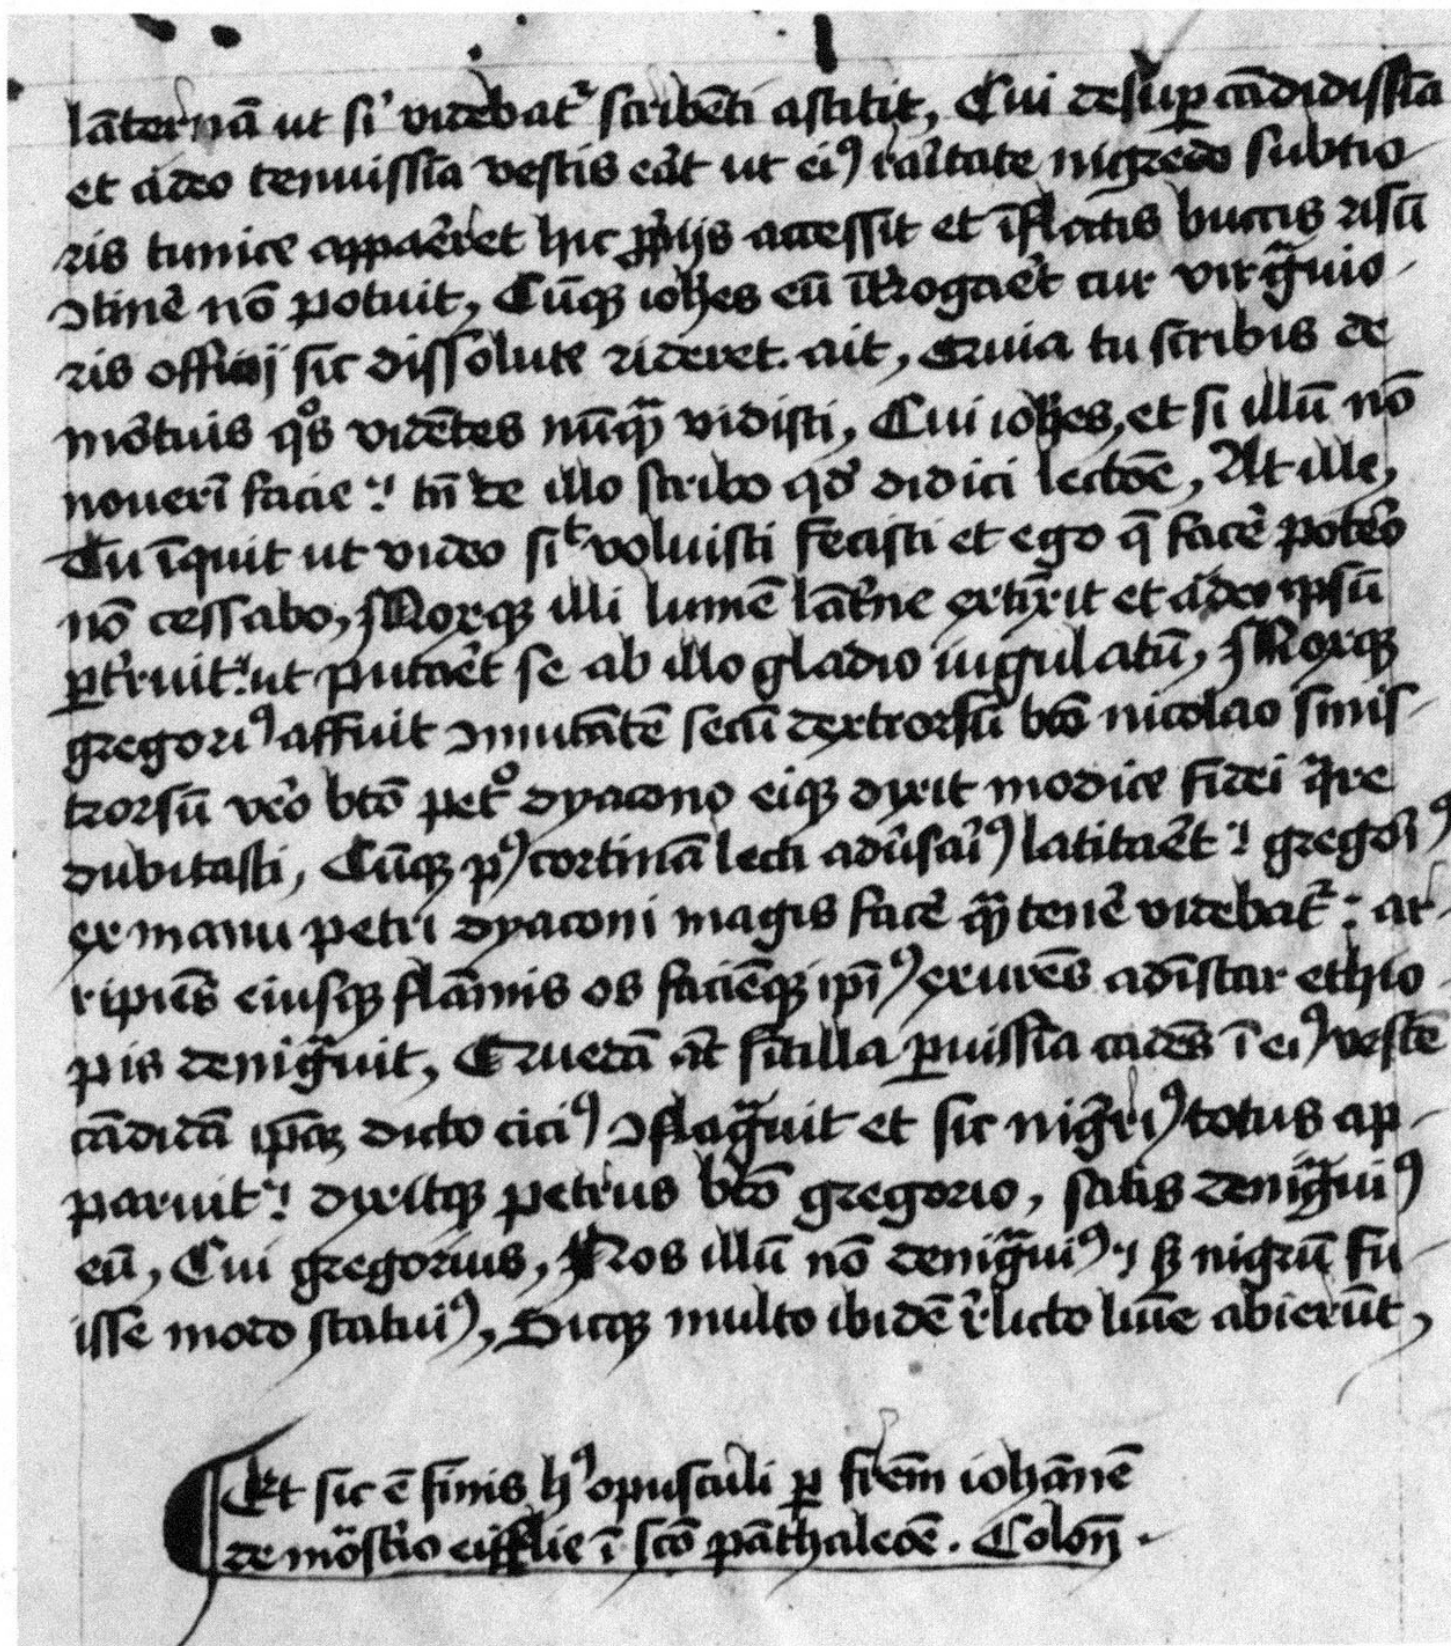 lāternā ut si' videbat᷑ scribēti astitit, Cui desup̱ cādidissīa
et adeo tenuissīa vestis eāt ut ei⁹ raritate nigredo subtio-
ris tunice appar̄et hic ꝓpiꝰ accessit et īflatis buccis risū
ↄtinē nō potuit, Cūqꝫ ioh̄es eū īt̄rogar̄et cur vir gͣuio-
ris officij sic dissolute rideret. ait, Quia tu scribis de
mōtuis qͦs vidētes nūqͣ vidisti, Cui ioh̄es, et si illū nō
noueri facie : tn̄ de illo scribo qd̄ didici lectōe, At ille,
Tu īquit ut video sit voluisti fecisti et ego q̄ facē potēo
nō cessabo, Moxqꝫ illi lumē lāt̄ne extīxit et adeo ipsū
ꝑt̄ruit : ut putar̄et se ab illo gladio iugulatū, Moxqꝫ
gregori⁹ affuit ↄmitātē secū dextrorsū bt̄o nicolao sinis-
trorsū vēo bt̄o petͦ dyacono eiqꝫ dixit modice fidei qͣre
dubitasti, Cūqꝫ p⁹ cortinā lecti adūsari⁹ latitar̄et : gregori⁹
ex manu petri dyaconi magis facē qͣ tenē videbat᷑ : ar-
ripiēs eiusqꝫ flāmis os faciēqꝫ ipi⁹ exurēs adīstar ethio-
pis denigͣuit, Quedā at̄ sītilla ꝑuissīa cadēs ī ei⁹ vestē
cādidā ip̄aꝫ dicto citi⁹ ↄflagͣuit et sic nigerri⁹ totus ap-
paruit : dixitqꝫ petrus bt̄o gregorio, satis denigͣui⁹
eū, Cui gregorius, Nos illū nō denigͣui⁹ : sꝫ nigrū fu-
isse modo statui⁹, Sicqꝫ multo ibidē r̄licto lūie abierūt,
Et sic ē finis h⁹ opusculi ꝑ fr̄em iohānē
de mōst̄io eifflie ī sc̄o pāthaleōe . Colon̄ .